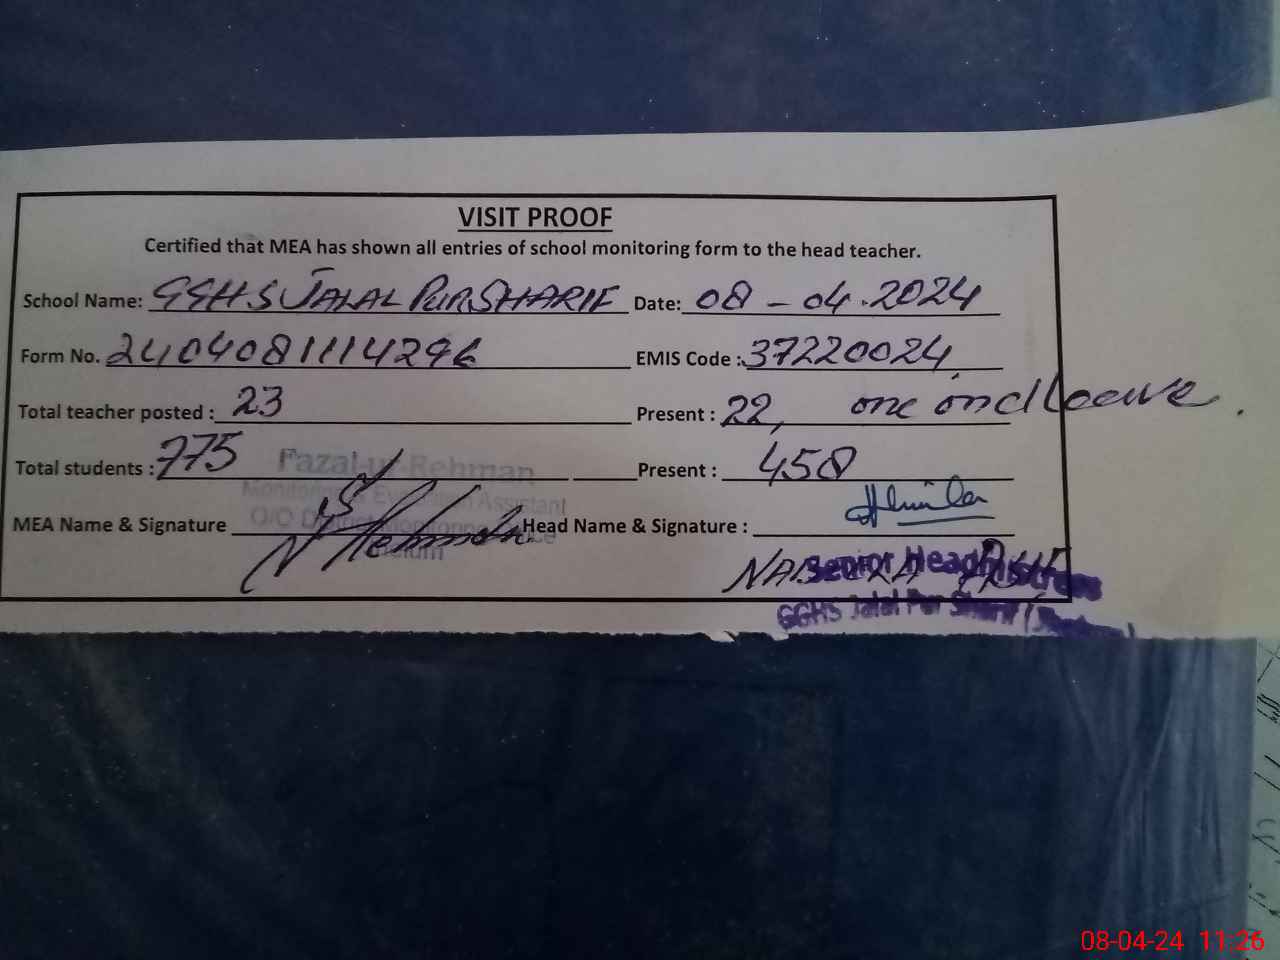 VISIT PROOF
Certified that MEA has shown all entries of school monitoring form to the head teacher.
School Name: GGHS JALAL PUR SHARIF Date: 08-04.2024
Form No. 2404081114296 EMIS Code : 37220024
Total teacher posted : 23 Present : 22, one ond leave.
Total students : 775 Present : 458
Fazal-ur-Rehman
Monitoring & Evaluation Assistant
O/O District Monitoring Office
Jhelum
MEA Name & Signature Rehman Head Name & Signature :
Senior Headmistress
GGHS Jalal Pur Sharif
08-04-24 11:26